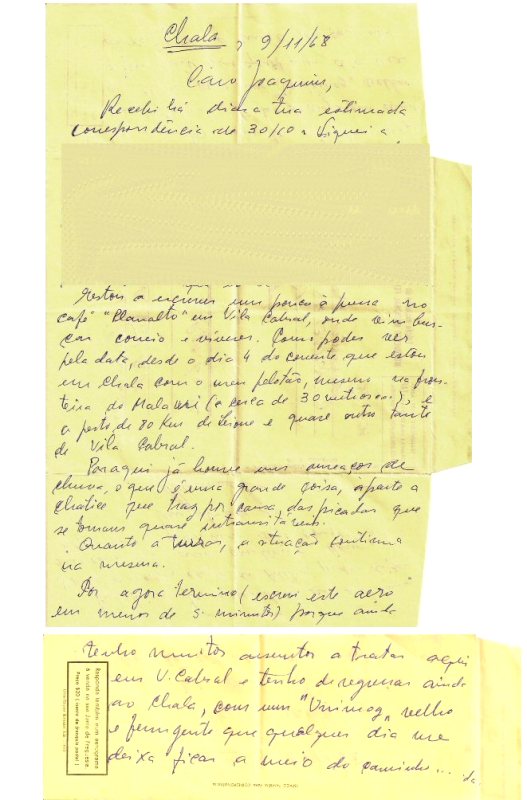 Chala, 9/11/68
Caro Joaquim,
Recebi há dias a tua estimada
correspondência de 30/10 e fiquei a
Estou a escrever um pouco à pressa no
café "Planalto" em Vila Cabral, onde vim bus-
car correio e víveres. Como podes ver
pela data, desde o dia 4 do corrente que estou
em Chala com o meu pelotão, mesmo na fron-
teira do Malawi (a cerca de 30 metros), e
a perto de 80 Km de Lione e quase outro tanto
de Vila Cabral.
Por aqui já houve uns ameaços de
chuva, o que é uma grande coisa, àparte a
chatice que traz por causa das picadas que
se tornam quase intransitáveis.
Quanto a turras, a situação continua
na mesma.
Por agora termino (escrevi este aero
em menos de 5 minutos) porque ainda
tenho muitos assuntos a tratar aqui
em V. Cabral e tenho de regressar ainda
ao Chala, com um "Unimog" velho
e ferrugento que qualquer dia me
deixa ficar a meio do caminho...
Responda também num aerograma
à venda no seu
Preço $20